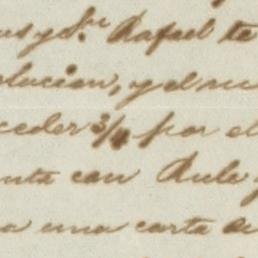 us y Sr. Rafael te
olucion, y el nu
ceder 3/4 por el
enta con Rule y
a una carta de